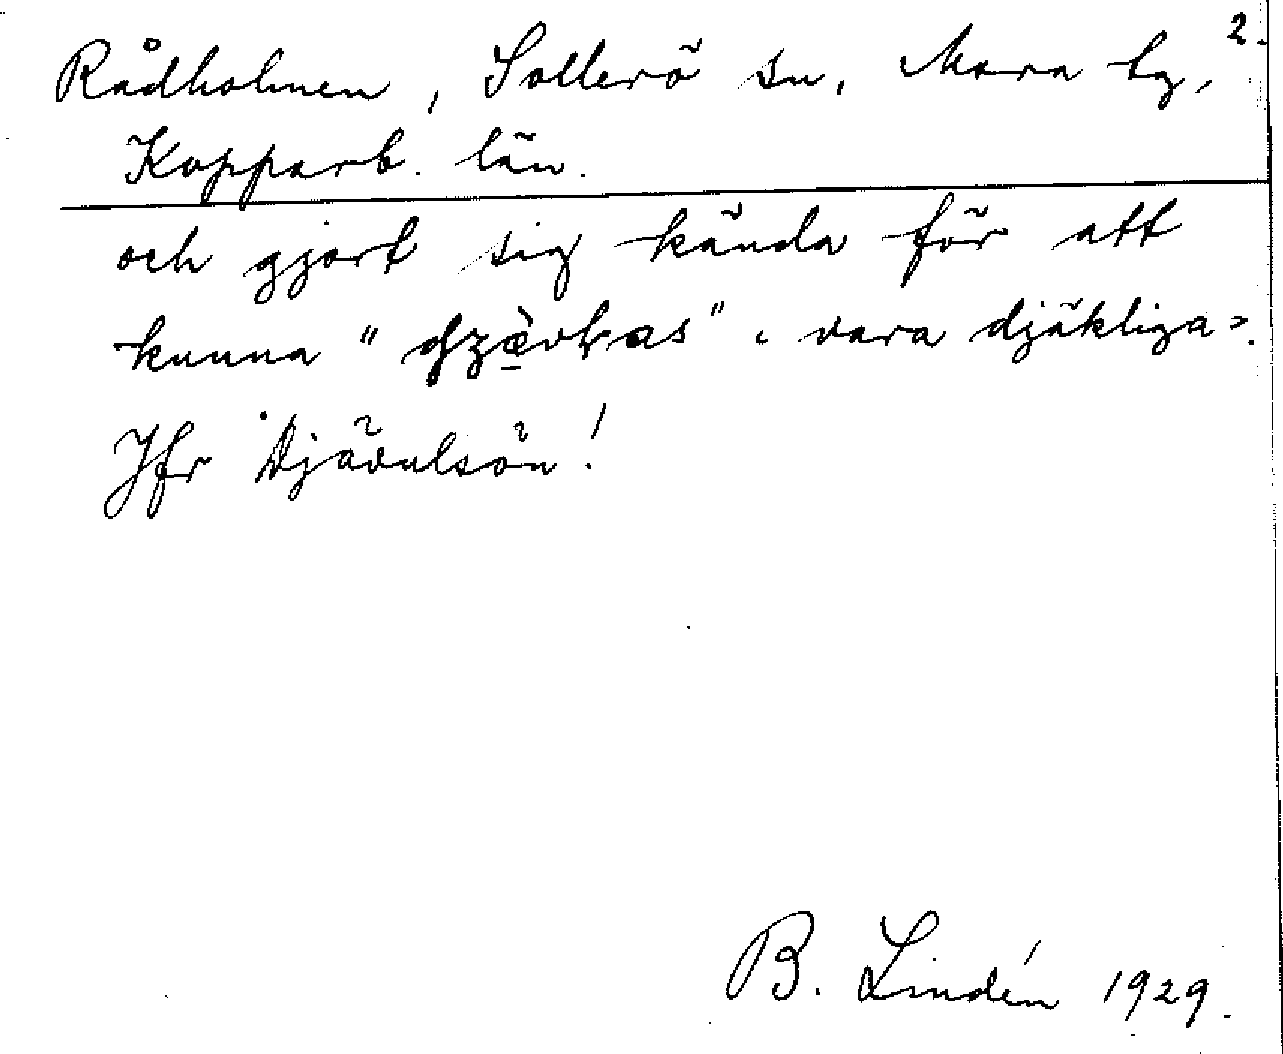 2.
Rådholmen, Sollerö sn, Mora tg,
Kopparb. län.
och gjort sig kända för att
kunna " " vara djäkliga».
Jfr Djävulsön!
B. Lindén 1929.